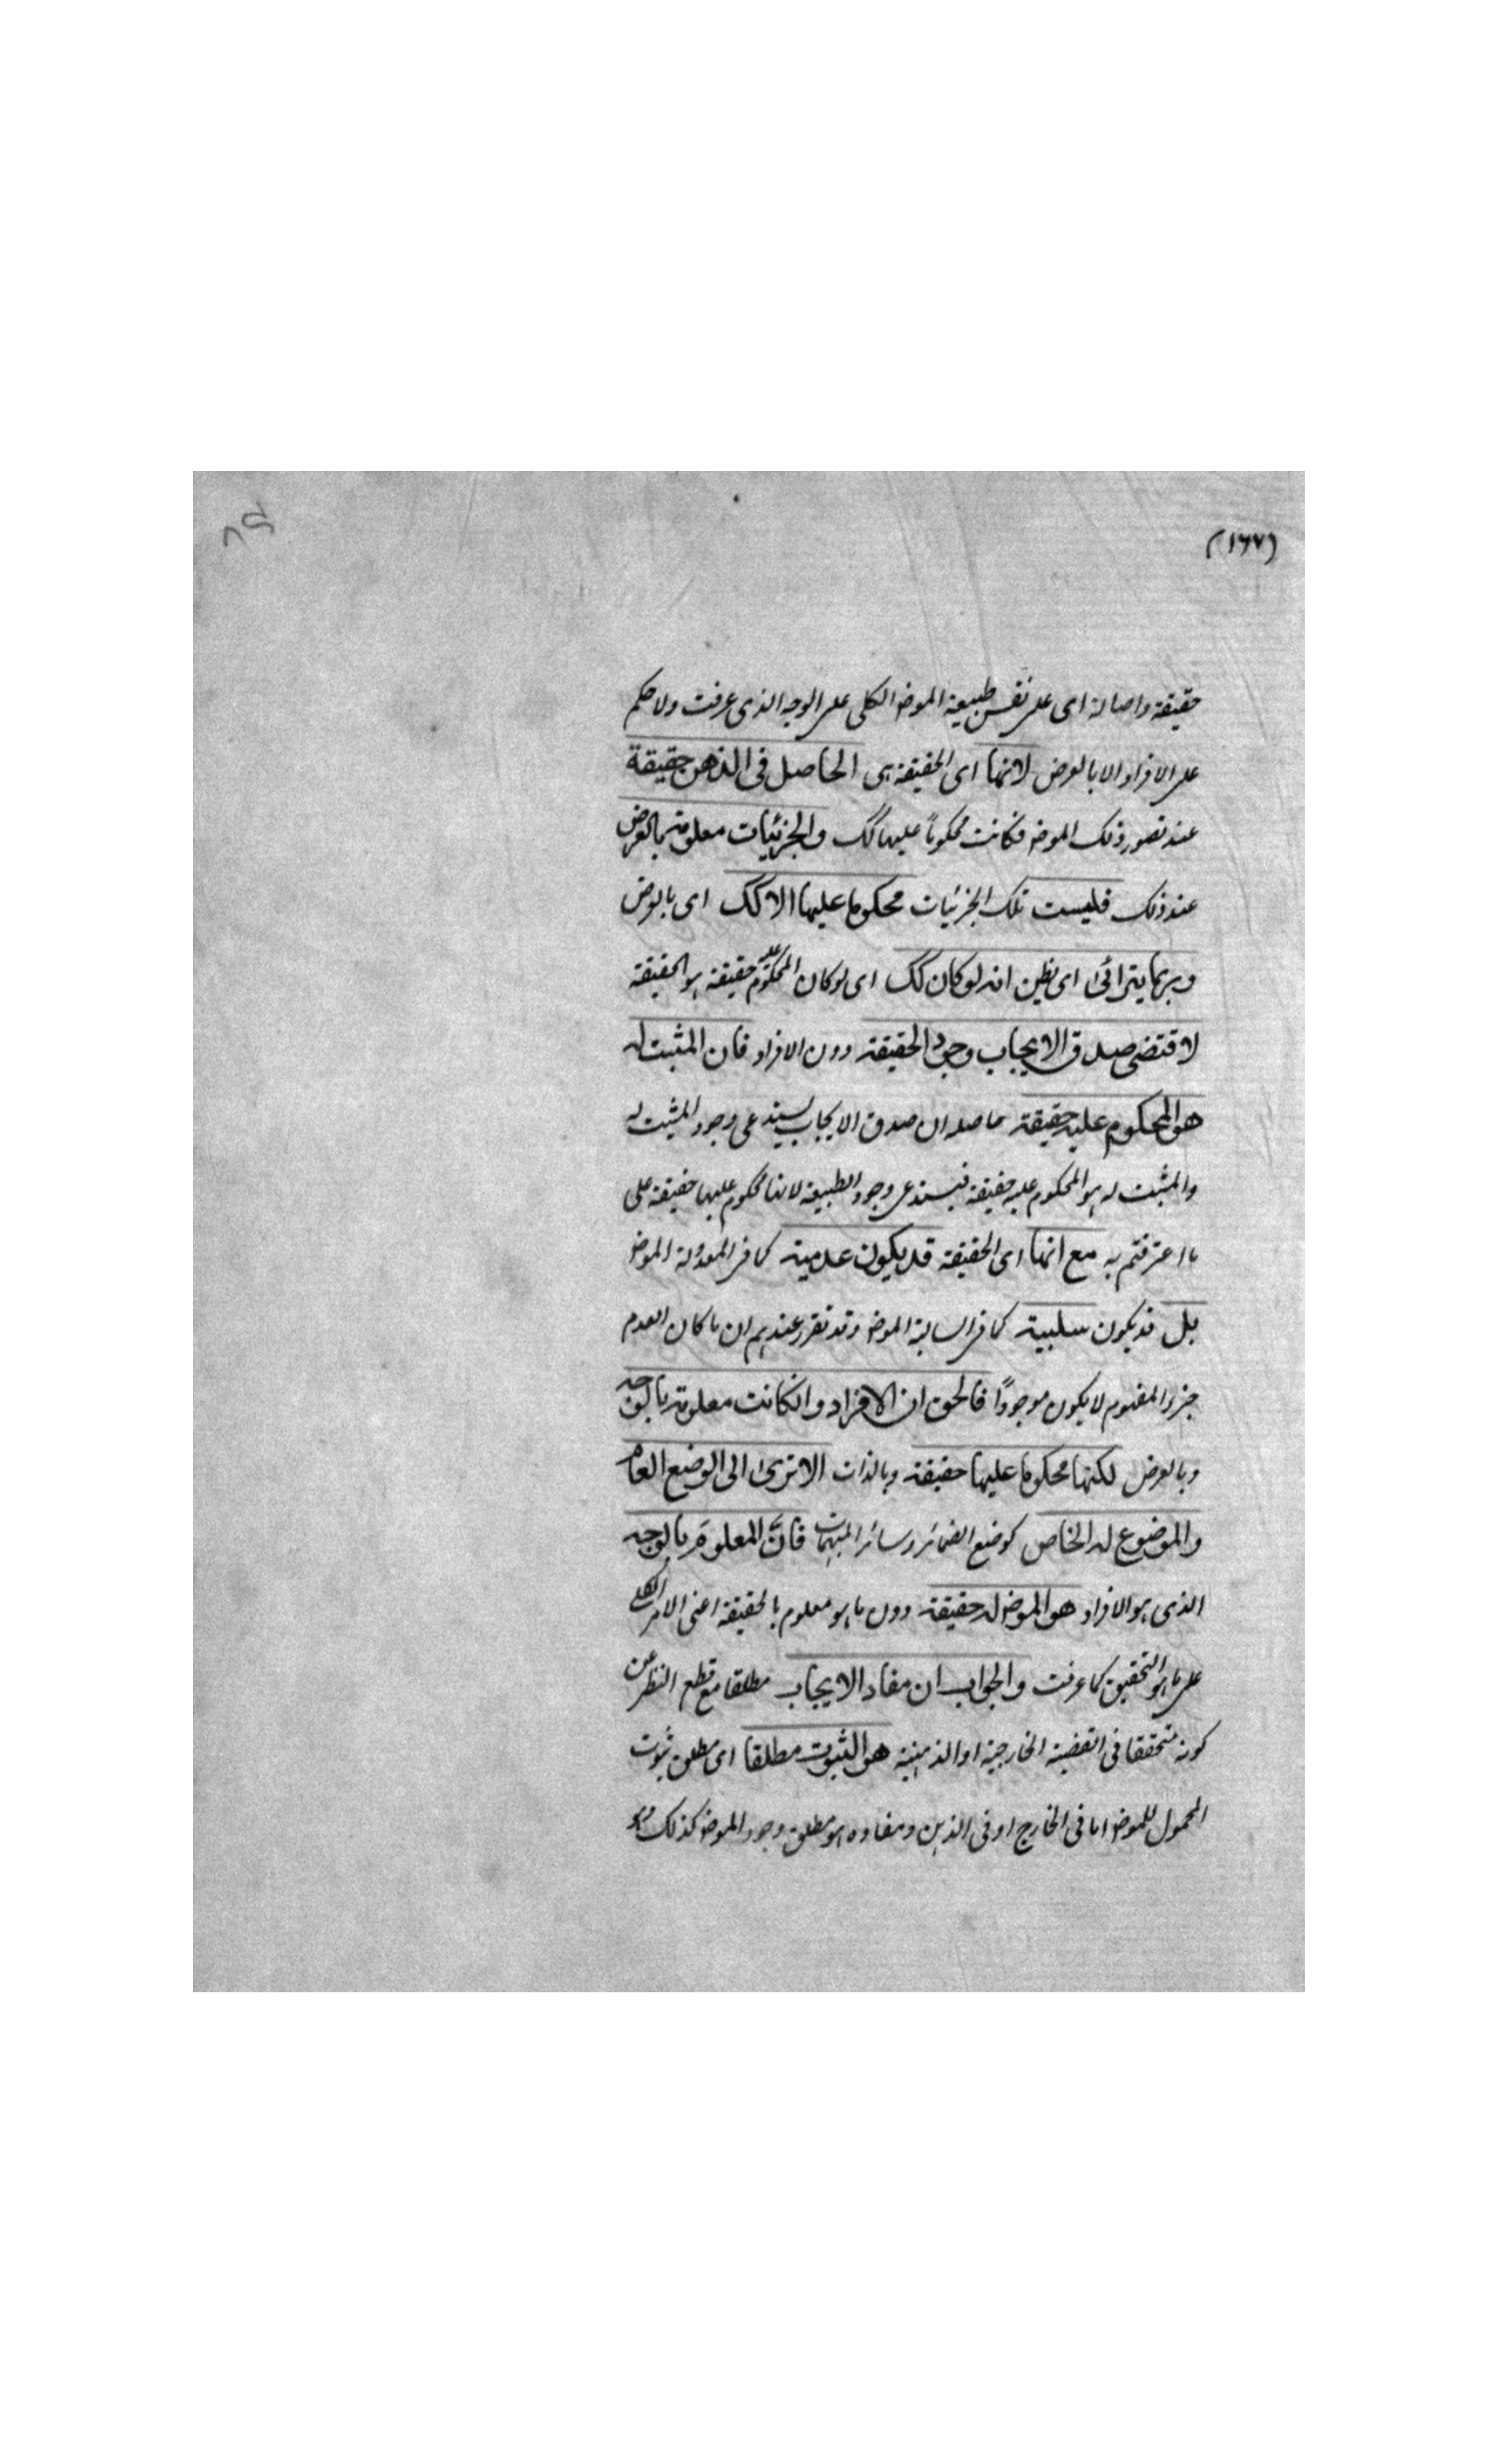 (١٦٧)
٨٥
حقيقة واصالة اى على نفس طبيعة الموضو الكلى على الوجه الذى عرفت ولا حكم
على الافراد الا بالعرض لانها اى الحقيقة هى الحاصل فى الذهن حقيقة
عند تصور ذلك الموضو فكانت محكوماً عليها كك والجزئيات معلومة بالعرض
عند ذلك فليست تلك الجزئيات محكوما عليها الا كك اى بالعرض
وربما يترائى اى يظن انه لو كان كك اى لو كان المحكوم عليه حقيقة هو الحقيقة
لاقتضى صدق الايجاب وجود الحقيقة دون الافراد فان المثبت له
هو المحكوم عليه حقيقة حاصله ان صدق الايجاب يستدعى وجود المثبت له
والمثبت له هو المحكوم عليه حقيقة فيستدعى وجود الطبيعة لانها محكوم عليها حقيقة على
ما اعترفتم به مع انها اى الحقيقة قد يكون عدمية كما فى المعدولة الموضو
بل قد يكون سلبية كما فى السالبة الموضو وقد تقرر عندهم ان ما كان العدم
جزء المفهوم لا يكون موجوداً فالحق ان الافراد وانكانت معلومة بالوجه
وبالعرض لكنها محكوما عليها حقيقة وبالذات الا ترى الى الوضع العام
والموضوع له الخاص كوضع الضمائر وسائر المبهمات فانَّ المعلومَ بالوجه
الذى هو الافراد هو الموضو له حقيقة دون ما هو معلوم بالحقيقة اعنى الامر الكلى
على ما هو التحقيق كما عرفت والجواب ان مفاد الايجاب مطلقا مع قطع النظر عن
كونه متحققا فى القضية الخارجية او الذهنية هو الثبوت مطلقا اى مطلق ثبوت
المحمول للموضو اما فى الخارج او فى الذهن ومفاده هو مطلق وجود الموضو كذلك وهو